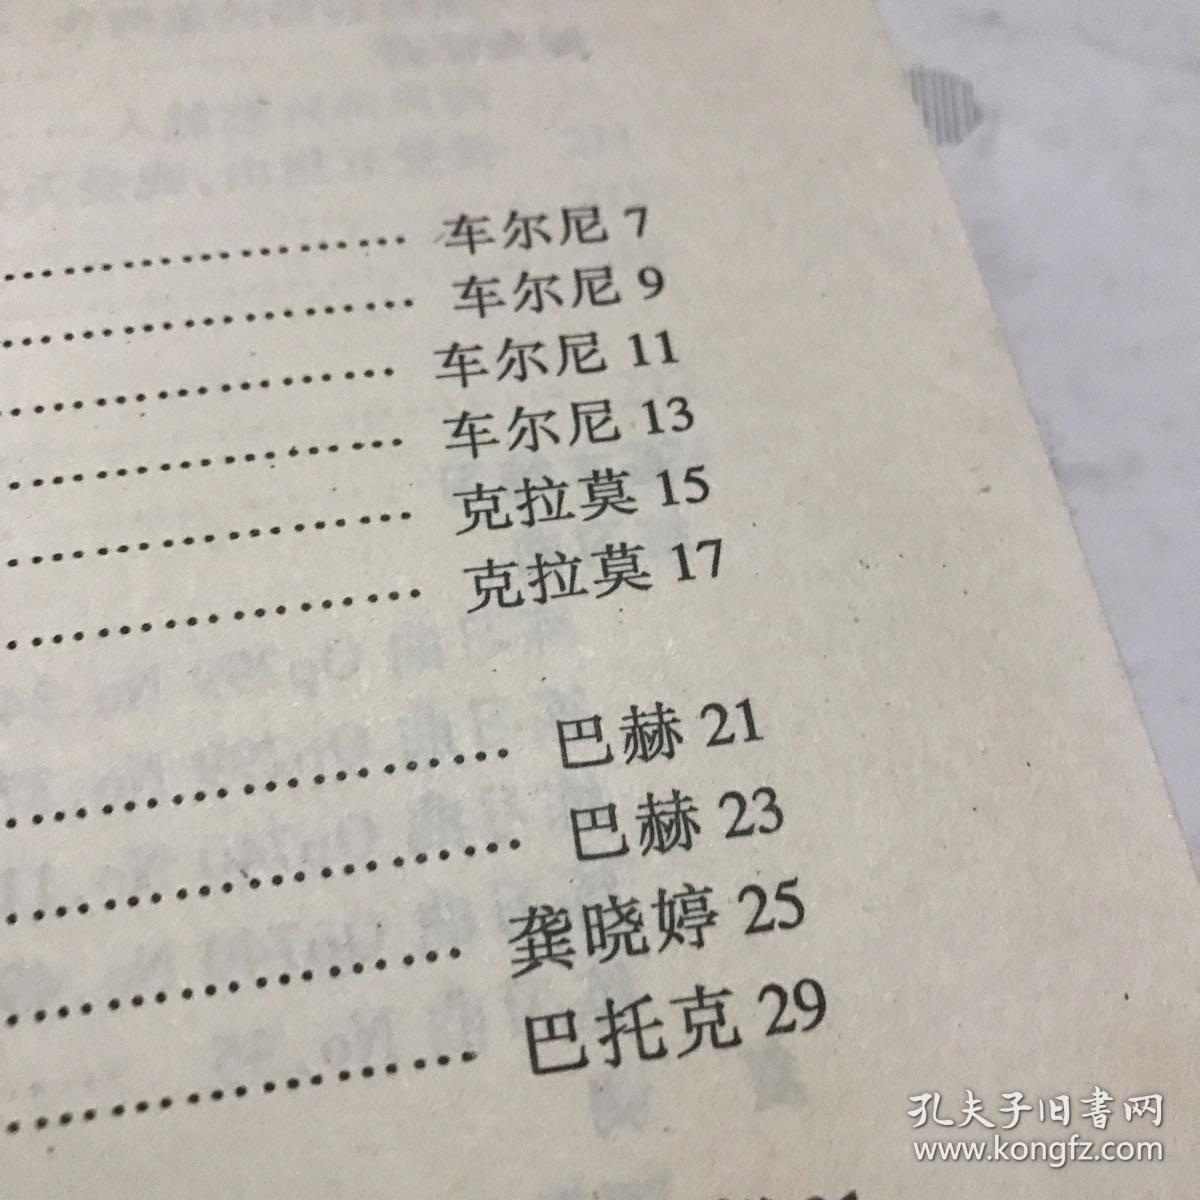 ………………… 车尔尼 7
………………… 车尔尼 9
………………… 车尔尼 11
………………… 车尔尼 13
………………… 克拉莫 15
………………… 克拉莫 17
………………… 巴赫 21
………………… 巴赫 23
………………… 龚晓婷 25
………………… 巴托克 29
孔夫子旧書网
www.kongfz.com